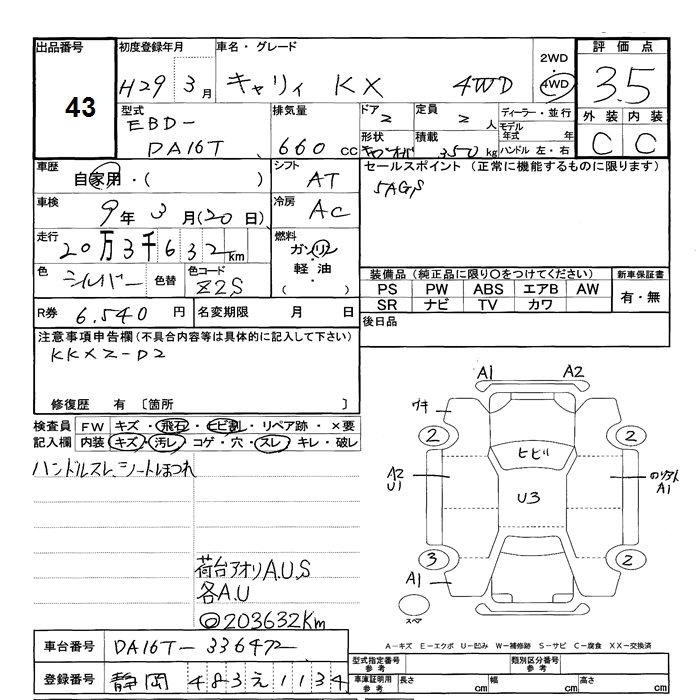 出品番号 43
初度登録年月 H29 3月
車名・グレード キャリィ KX 4WD
2WD・4WD
評価点 3.5
外装 内装
C C
型式 EBD-DA16T
排気量 660cc
ドア 2
定員 2人
ディーラー・並行
モデル年式 年
形状
積載 350kg
ハンドル 左・右
車歴 自家用・( )
シフト AT
セールスポイント(正常に機能するものに限ります)
5AGS
車検 9年3月(20日)
冷房 AC
走行 20万3千632Km
燃料 ガソリン・軽油・( )
色 シルバー 色替 色コード Z2S
装備品(純正品に限り○をつけてください)
新車保証書
PS PW ABS エアB AW
有・無
SR ナビ TV カワ
R券 6,540円
名変期限 月 日
後日品
注意事項申告欄(不具合内容等は具体的に記入して下さい)
KKXZ-D2
修復歴 有 〔箇所 〕
検査員記入欄
FW キズ・飛石・ヒビ割・リペア跡・×要
内装 キズ・汚レ・コゲ・穴・スレ・キレ・破レ
ハンドルスレ、シートほつれ
荷台アオリA.U.S
各A.U
◎203632Km
A1 A2
ウキ
2 2
ヒビ
A2 U1
U3
A1
3 2
A1
スペア
A-キズ E-エクボ U-凹み W-補修跡 S-サビ C-腐食 XX-交換済
車台番号 DA16T-336472
型式指定番号 参考
類別区分番号 参考
登録番号 静岡 483え1134
車庫証明用 参考
長さ cm 幅 cm 高さ cm